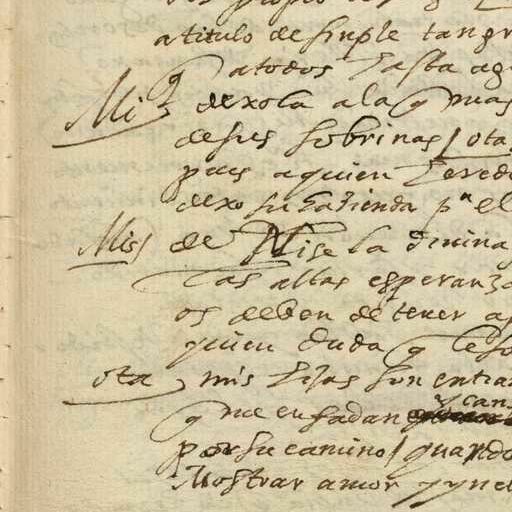 a titulo de simple tan gr
q a todos hasta ag
Mis dexola a la q mas
de sus sobrinas / ota
pues a quien heredo
dexo su hazienda pª el
Mis / de Nise la divina
las altas esperanza
os deben de tener a
quien duda q le so
ota mis hijas son entra
y can
q me enfadan
por su camino / quando
Mostrar amor y